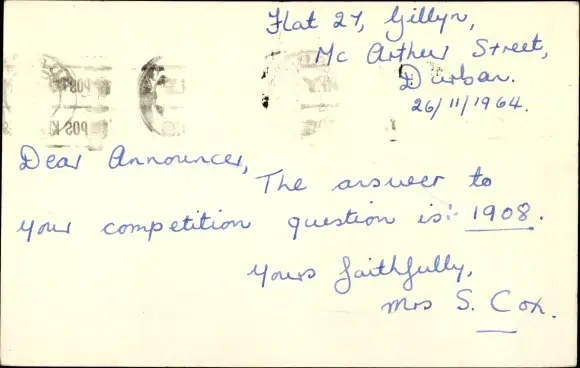 Flat 27, Gillyn,
Mc Arthur Street,
Durban.
26/11/1964.
Dear Announcer,
The answer to
your competition question is:- 1908.
Yours faithfully,
Mrs S. Cox.